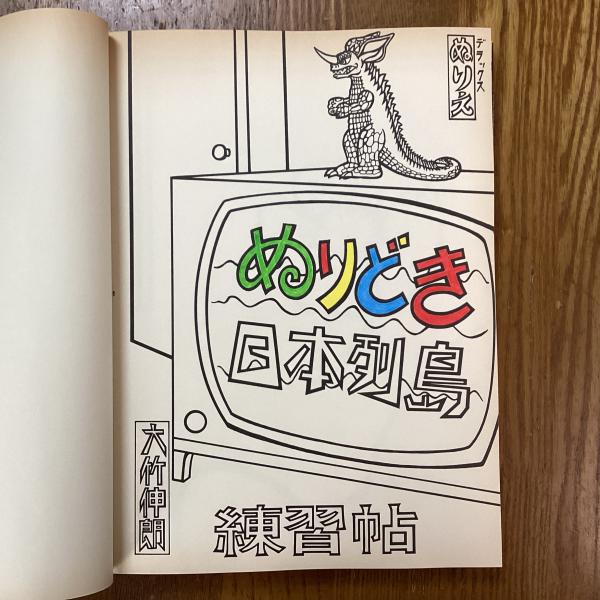 デラックス
ぬりえ
ぬりどき
日本列島
大竹伸朗
練習帖